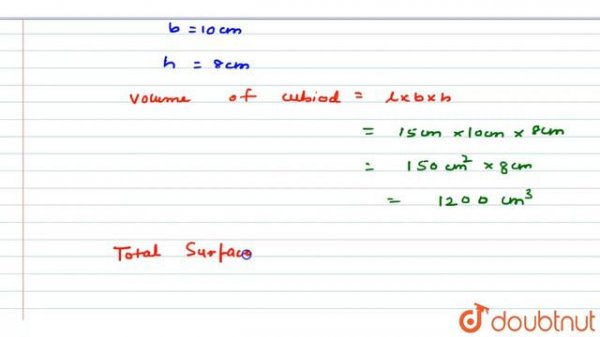 b = 10 cm
h = 8 cm
Volume of cubiod = l x b x h
= 15 cm x 10 cm x 8 cm
= 150 cm² x 8 cm
= 1200 cm³
Total Surface
doubtnut